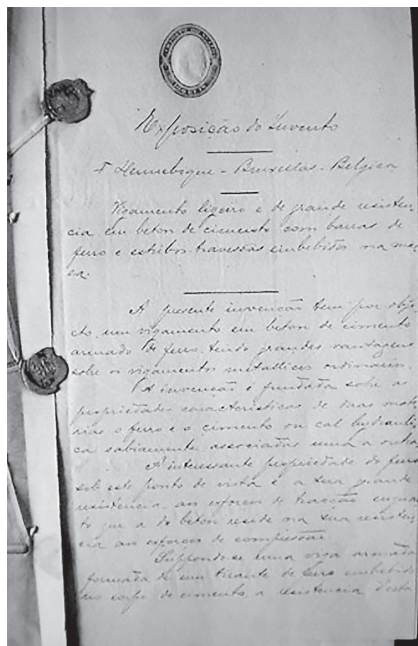 Exposição do Invento
F Hennebique - Bruxellas - Belgica
Vigamento ligeiro e de grande resisten-
cia em beton de cimento com barras de
ferro e estribos travessões embebidos na mas-
sa.
A presente invenção tem por obje-
cto um vigamento em beton de cimento
armado de ferro, tendo grandes vantagens
sobre os vigamentos metallicos ordinarios.
A invenção é fundada sobre as
propriedades caracteristicas de duas mate-
rias o ferro e o cimento ou cal hydrauli-
ca sabiamente associadas uma a outra
A interessante propriedade do ferro
sob este ponto de vista é a sua grande
resistencia aos esforços de tracção emquan-
to que a do beton reside na sua resisten-
cia aos esforços de compressão
Suppondo-se uma viga armada
formada de um tirante de ferro embebido
no corpo de cimento, a resistencia d'esta